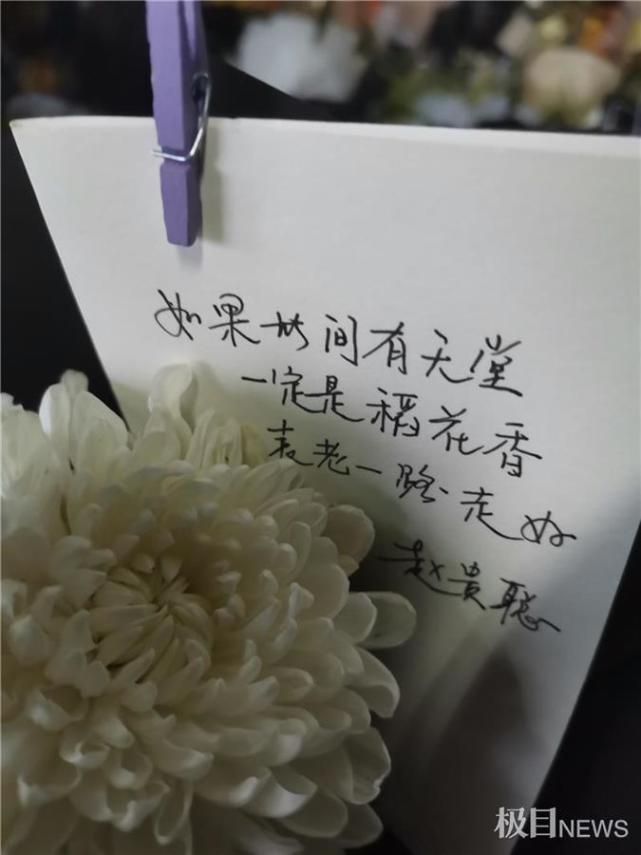 如果世间有天堂
一定是稻花香
袁老一路走好
赵贵聪
极目NEWS